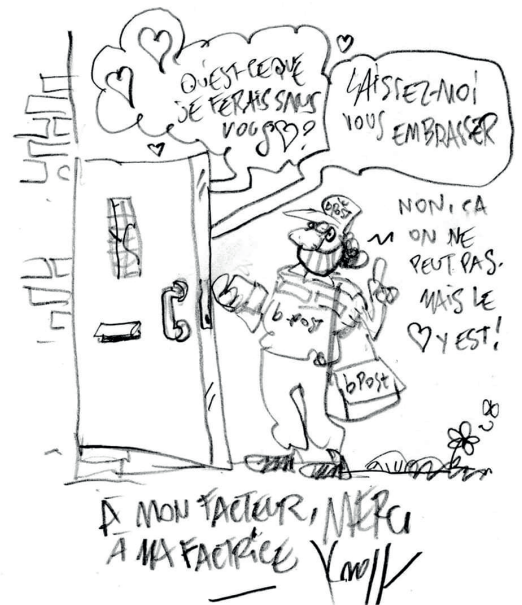 QU'EST-CE QUE
JE FERAIS SANS
VOUS♡?
LAISSEZ-MOI
VOUS EMBRASSER
NON, ÇA
ON NE
PEUT PAS.
MAIS LE
♡ Y EST!
bPOST
b-POST
bPOST
À MON FACTEUR, MERCI
À MA FACTRICE